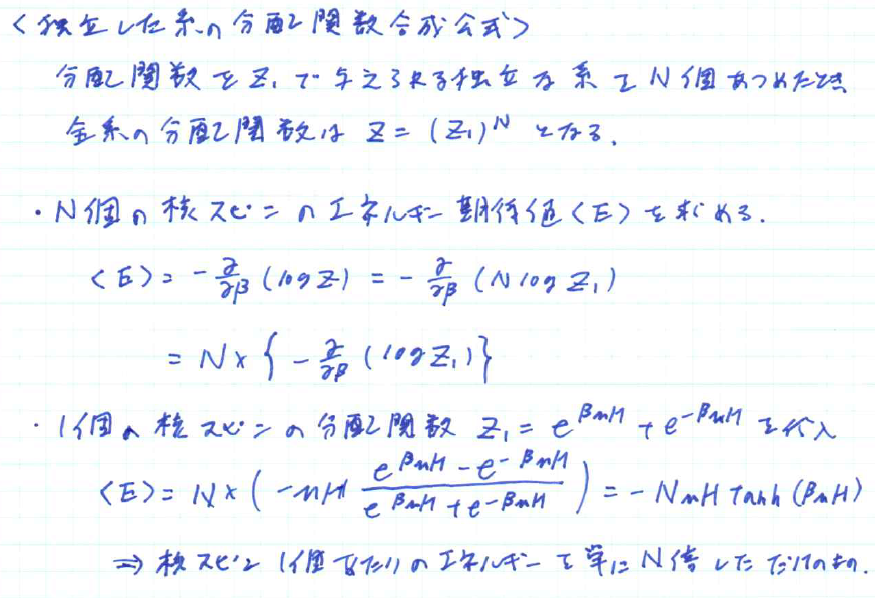 ＜独立した系の分配関数合成公式＞
分配関数を Z₁ で与えられる独立な系を N個あつめたとき
全系の分配関数は Z = (Z₁)^N となる.
・N個の核スピンのエネルギー期待値〈E〉を求める.
〈E〉= -∂/∂β (log Z) = -∂/∂β (N log Z₁)
= N × { -∂/∂β (log Z₁) }
・1個の核スピンの分配関数 Z₁ = e^{βmH} + e^{-βmH} を代入
〈E〉= N × ( -mH (e^{βmH} - e^{-βmH}) / (e^{βmH} + e^{-βmH}) ) = -NmH tanh (βmH)
⇒ 核スピン 1個あたりのエネルギーを単に N倍しただけのもの.